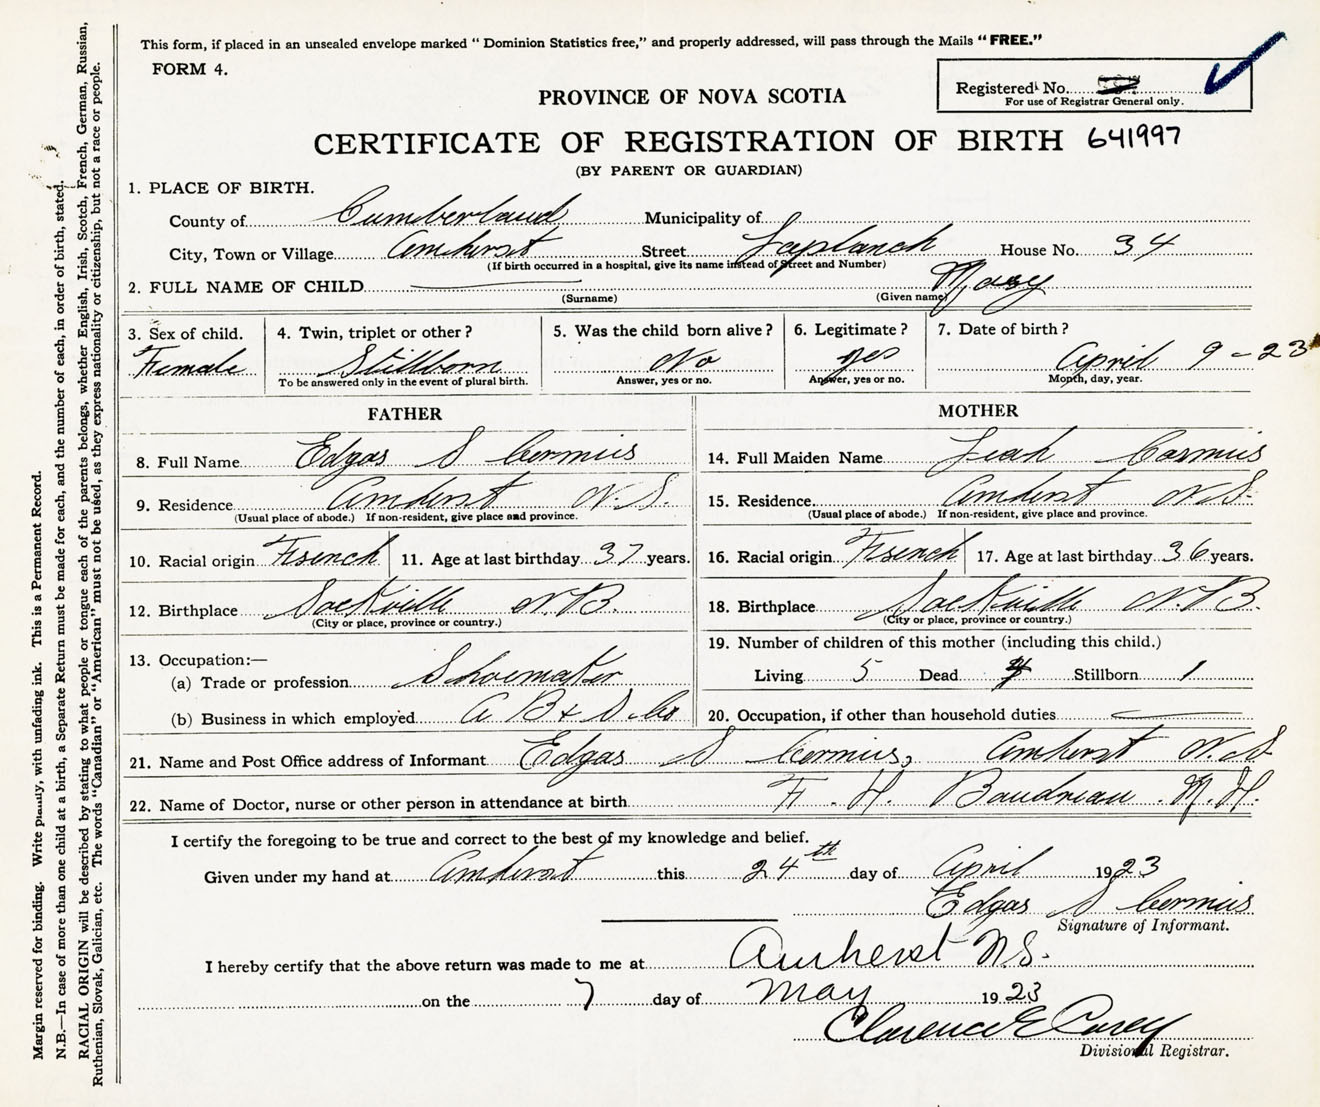 This form, if placed in an unsealed envelope marked “ Dominion Statistics free,” and properly addressed, will pass through the Mails “ FREE.”
FORM 4.
Registered No.
For use of Registrar General only.
PROVINCE OF NOVA SCOTIA
CERTIFICATE OF REGISTRATION OF BIRTH 641997
(BY PARENT OR GUARDIAN)
1. PLACE OF BIRTH.
County of Cumberland Municipality of
City, Town or Village Amherst Street Laplanch House No. 34
(If birth occurred in a hospital, give its name instead of Street and Number)
2. FULL NAME OF CHILD Mary
(Surname) (Given name)
3. Sex of child. 4. Twin, triplet or other? 5. Was the child born alive? 6. Legitimate? 7. Date of birth?
Female Stillborn No yes April 9 - 23
To be answered only in the event of plural birth. Answer, yes or no. Answer, yes or no. Month, day, year.
FATHER MOTHER
8. Full Name Edgar S Cormier 14. Full Maiden Name Leah Cormier
9. Residence Amherst N.S. 15. Residence Amherst N.S.
(Usual place of abode.) If non-resident, give place and province. (Usual place of abode.) If non-resident, give place and province.
10. Racial origin French 11. Age at last birthday 37 years. 16. Racial origin French 17. Age at last birthday 36 years.
12. Birthplace Sackville N.B. 18. Birthplace Sackville N.B.
(City or place, province or country.) (City or place, province or country.)
19. Number of children of this mother (including this child.)
13. Occupation:—
(a) Trade or profession Shoemaker Living 5 Dead Stillborn 1
(b) Business in which employed A B & S Co 20. Occupation, if other than household duties
21. Name and Post Office address of Informant Edgar S Cormier, Amherst N.S
22. Name of Doctor, nurse or other person in attendance at birth F. H. Baudreau
I certify the foregoing to be true and correct to the best of my knowledge and belief.
Given under my hand at Amherst this 24th day of April 1923
Edgar S Cormier
Signature of Informant.
I hereby certify that the above return was made to me at Amherst N.S.
on the 7 day of May 1923
Clarence E Carey
Divisional Registrar.
Margin reserved for binding. Write plainly, with unfading ink. This is a Permanent Record.
N.B.—In case of more than one child at a birth, a Separate Return must be made for each, and the number of each, in order of birth, stated.
RACIAL ORIGIN will be described by stating to what people or tongue each of the parents belongs, whether English, Irish, Scotch, French, German, Russian,
Ruthenian, Slovak, Galician, etc. The words “Canadian” or “American” must not be used, as they express nationality or citizenship, but not a race or people.